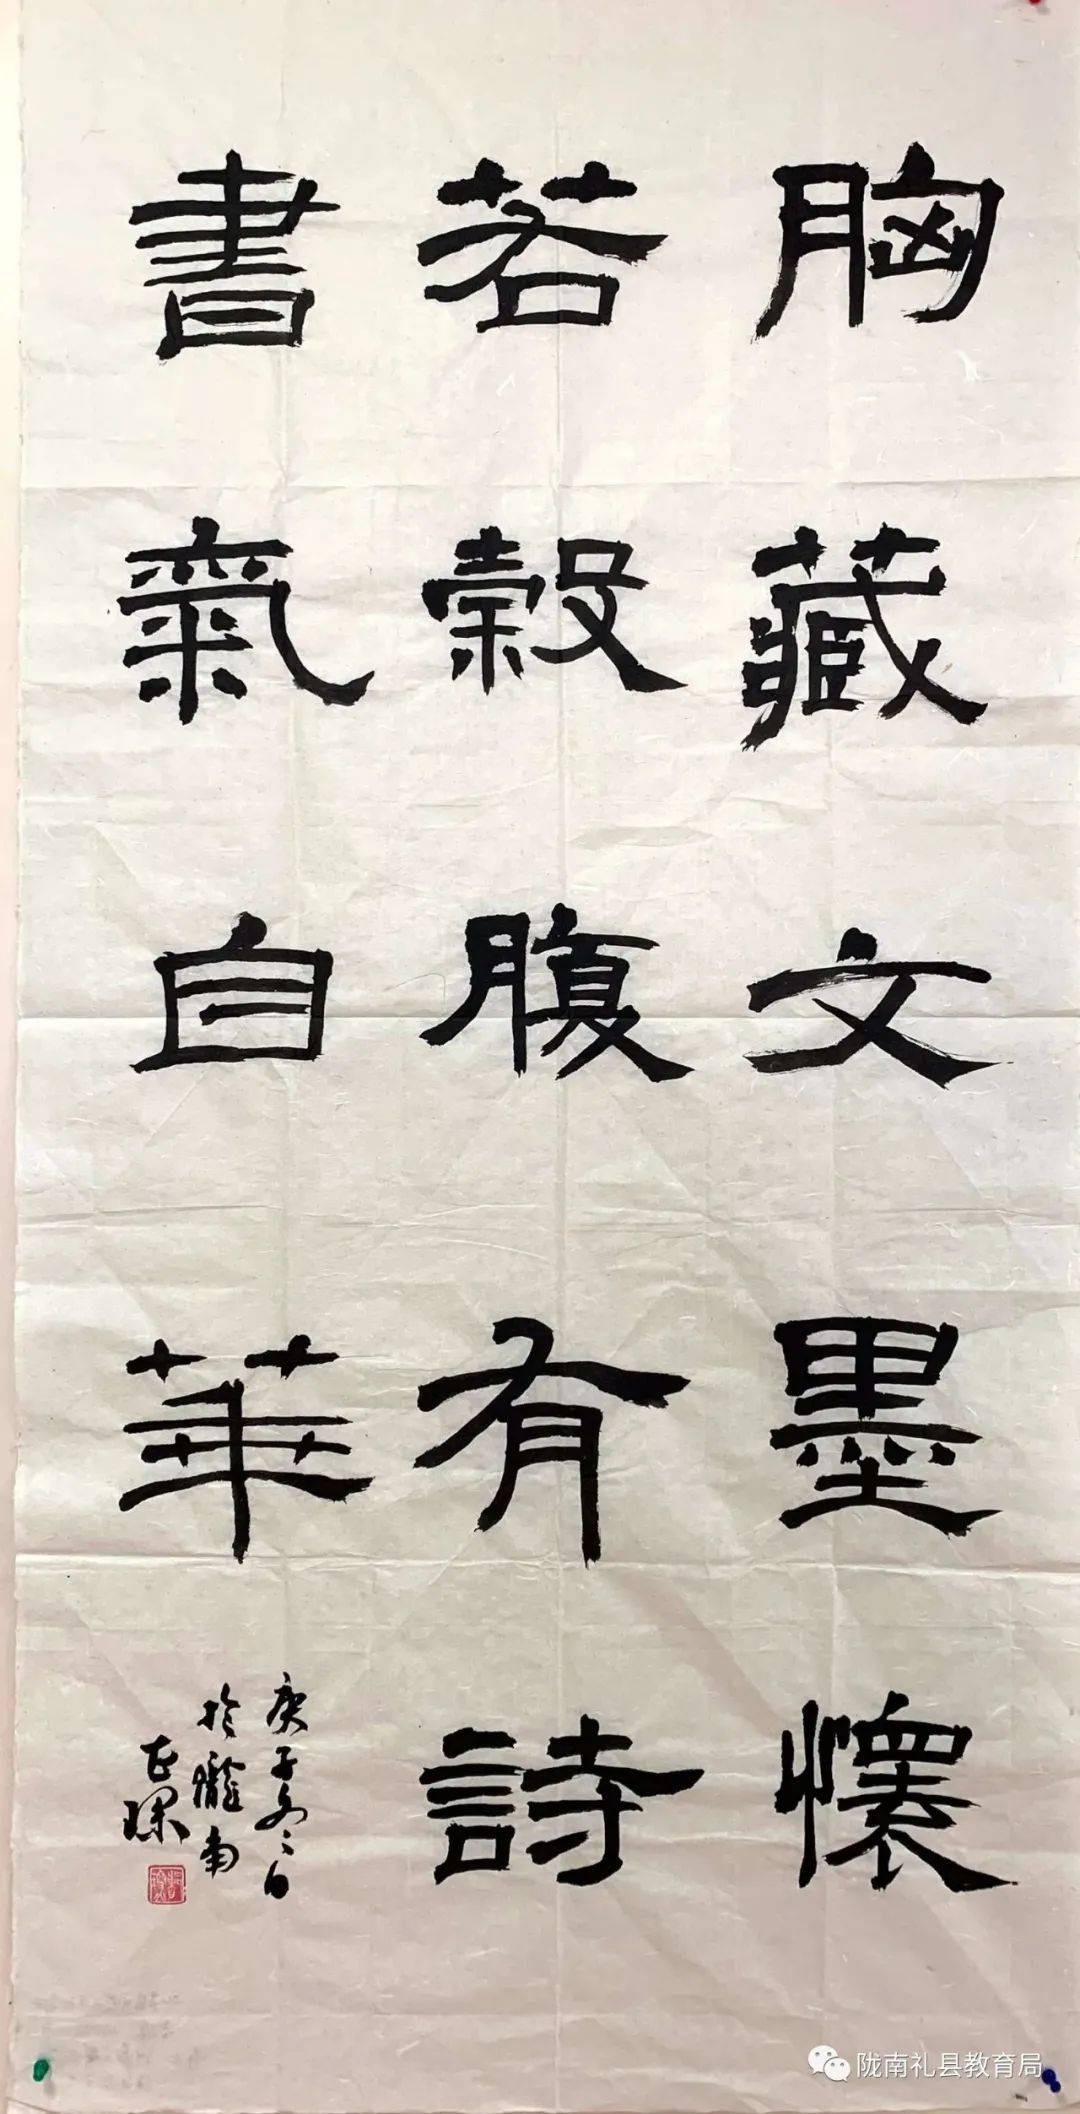 胸藏文墨懷
若榖腹有詩
書氣自華
庚子冬二日
於隴南
陇南礼县教育局